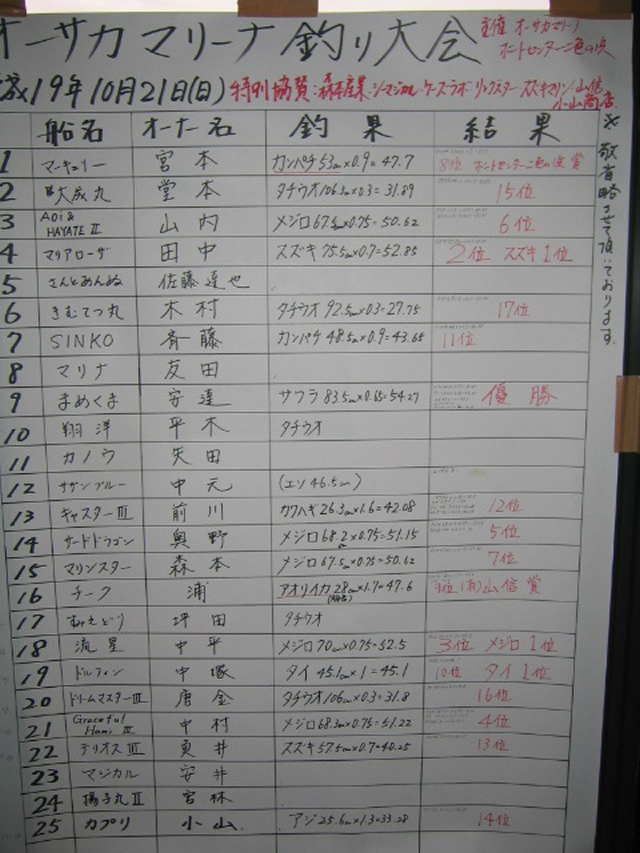 オーサカマリーナ釣り大会
主催 オーサカマリーナ
ボートセンター二色の浜
平成19年10月21日(日) 特別協賛:森本産業・シーマジカル・ケースラボ・リングスター・スズキマリン・山信
小山商店
※敬称略させて頂いております。
船名 オーナー名 釣果 結果
1 マーキュリー 宮本 カンパチ53m×0.9=47.7 8位 ボートセンター二色の浜賞
2 大成丸 堂本 タチウオ106.3m×0.3=31.89 15位
3 AOi & HAYATE II 山内 メジロ67.5m×0.75=50.62 6位
4 マリアローザ 田中 スズキ75.5m×0.7=52.85 2位 スズキ1位
5 さんとあんぬ 佐藤達也
6 きむてつ丸 木村 タチウオ92.5m×0.3=27.75 17位
7 SINKO 斉藤 カンパチ48.5m×0.9=43.65 11位
8 マリナ 友田
9 まめくま 安達 サワラ83.5m×0.65=54.27 優勝
10 翔洋 平木 タチウオ
11 カノウ 矢田
12 サザンブルー 中元 (エソ46.5m)
13 キャスターIII 前川 カワハギ26.3m×1.6=42.08 12位
14 サードドラゴン 奥野 メジロ68.2m×0.75=51.15 5位
15 マリンスター 森本 メジロ67.5m×0.75=50.62 7位
16 チーク 浦 アオリイカ28cm×1.7=47.6 9位 (有)山信賞
17 坪田 タチウオ
18 流星 中平 メジロ70cm×0.75=52.5 3位 メジロ1位
19 ドルフィン 中塚 タイ45.1m×1=45.1 10位 タイ1位
20 ドリームマスターIII 唐金 タチウオ106m×0.3=31.8 16位
21 Graceful Hami III 中村 メジロ68.3m×0.75=51.22 4位
22 テリオスIII 奥井 スズキ57.5m×0.7=40.25 13位
23 マジカル 安井
24 揚子丸II 宮林
25 カプリ 小山 アジ25.6m×1.3=33.28 14位